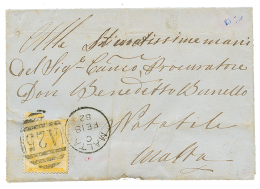 Alle Stimatissime mani
del Sig.r Can.co Procuratore
Don Benedetto
Notabile
Malta
MALTA
C
FE 18
82
A25